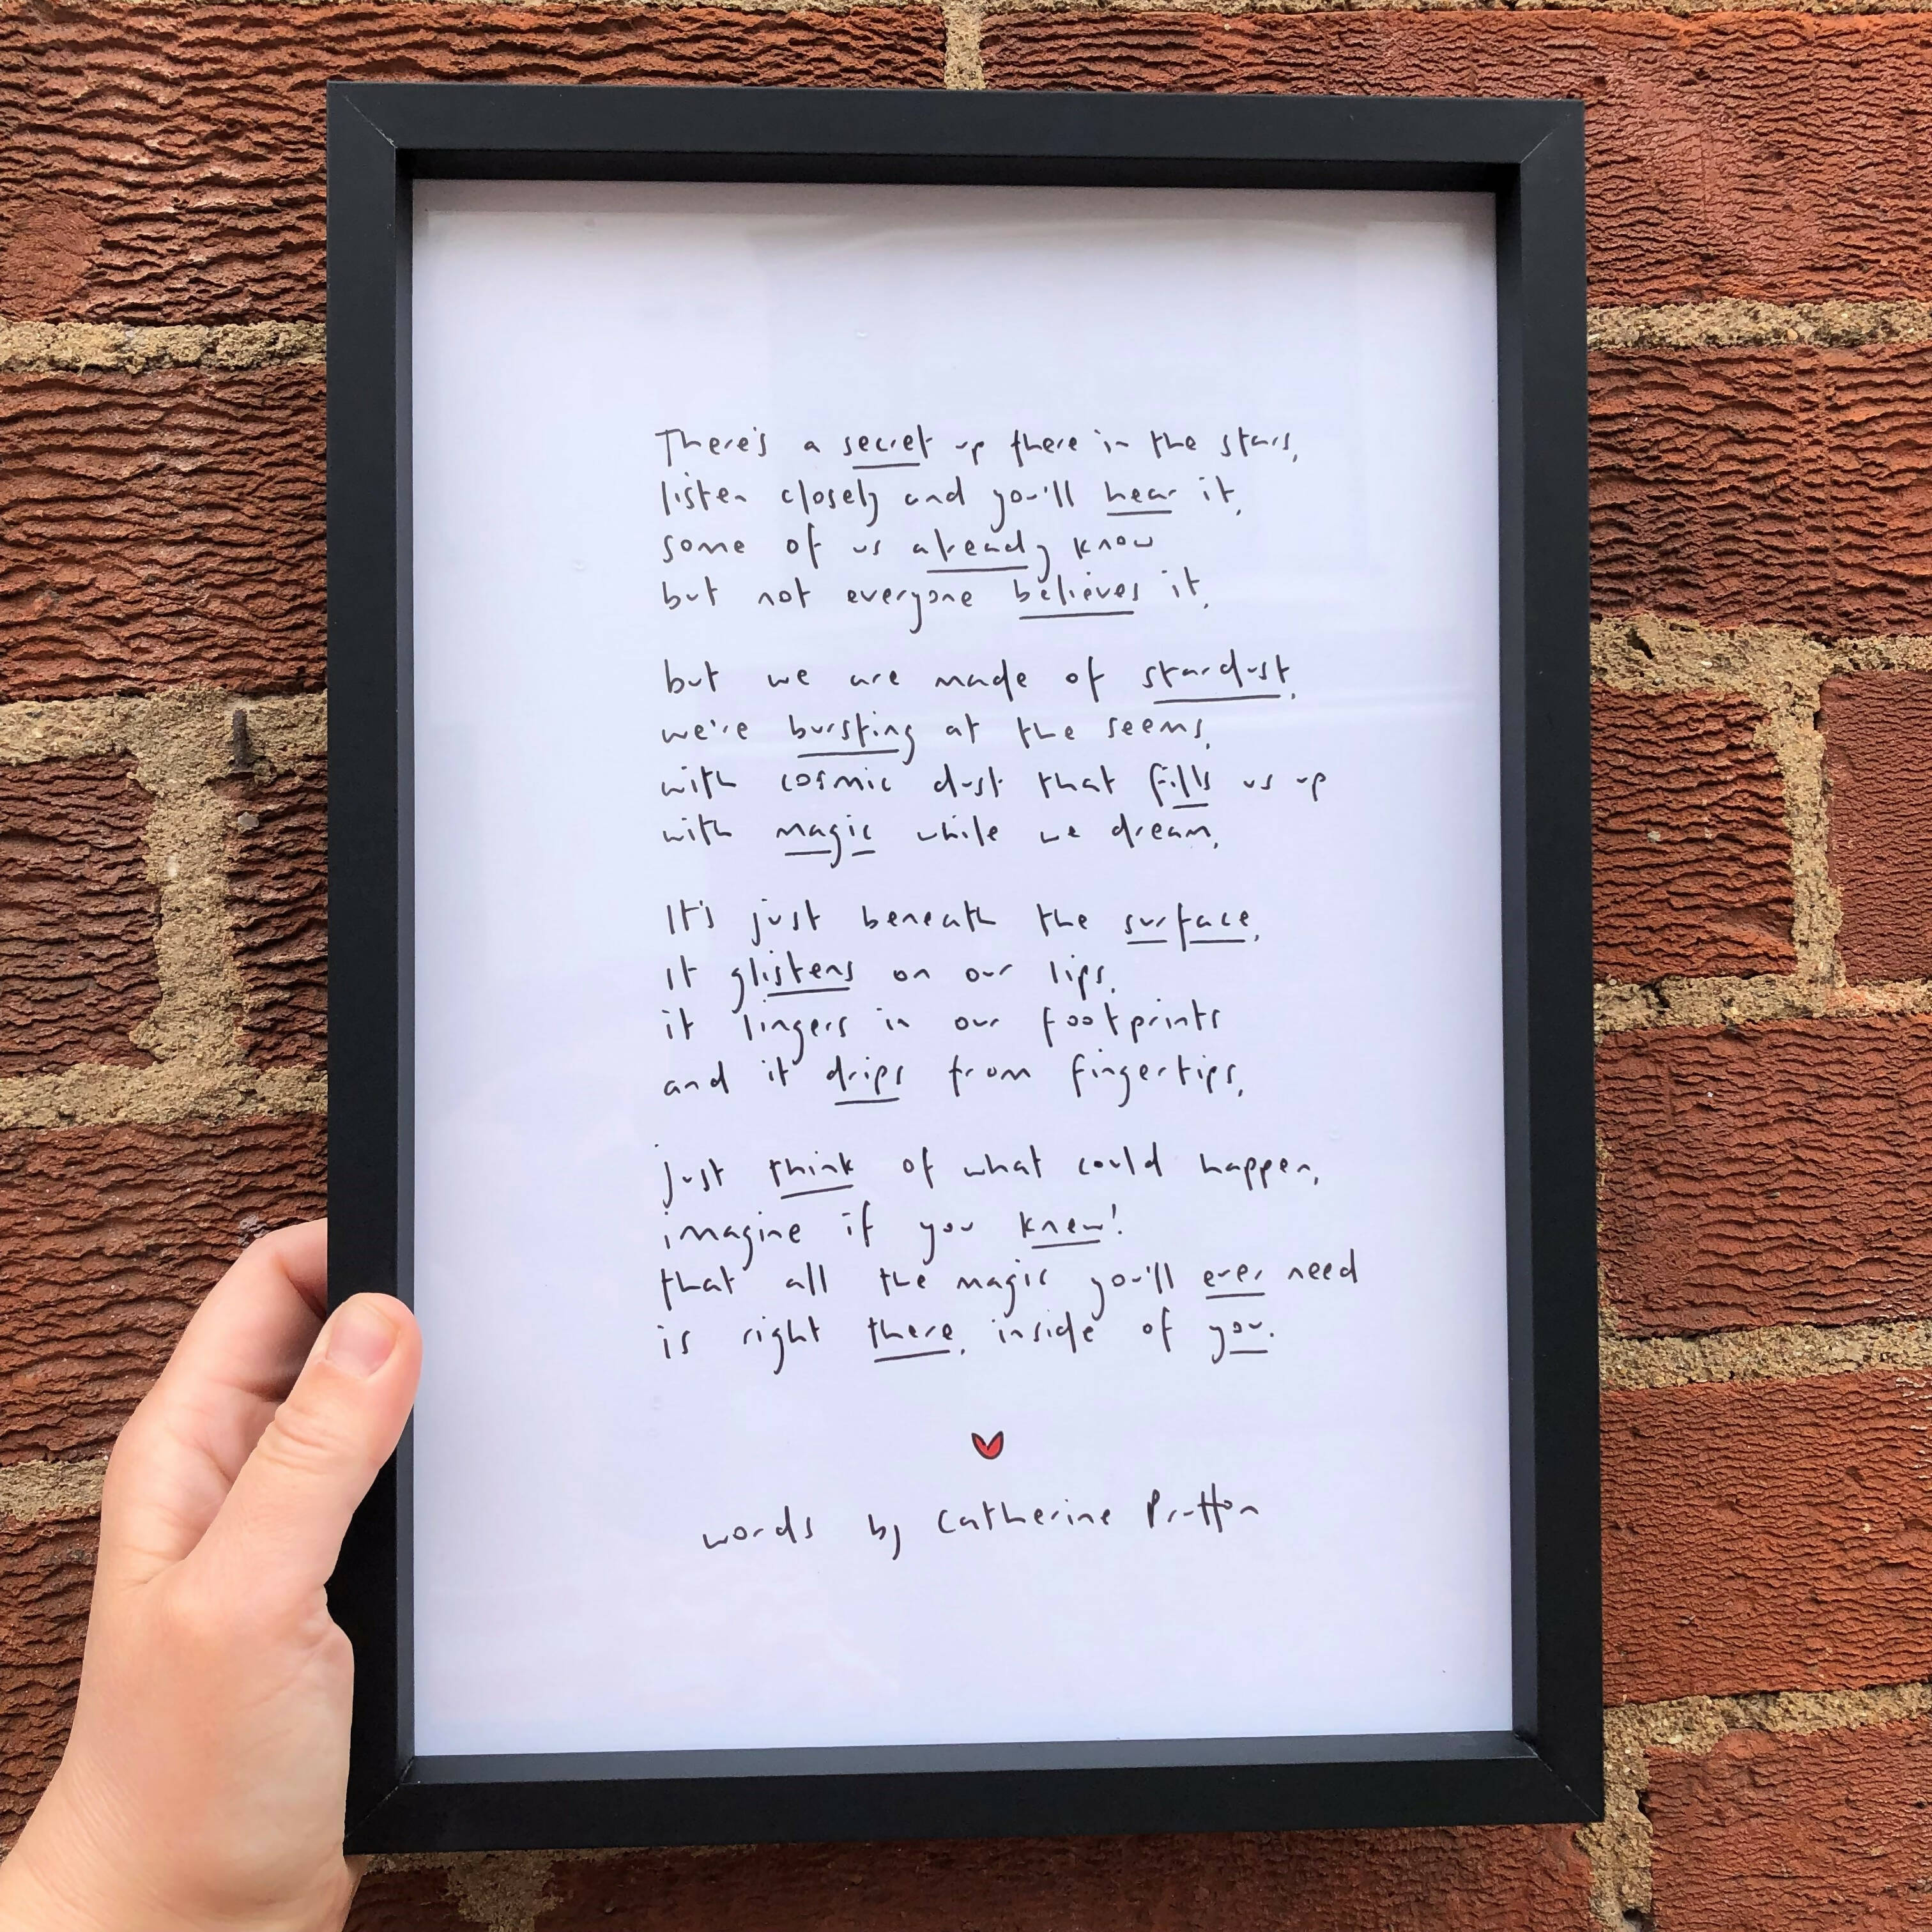 There's a secret up there in the stars,
listen closely and you'll hear it,
some of us already know
but not everyone believes it,
but we are made of stardust,
we're bursting at the seems,
with cosmic dust that fills us up
with magic while we dream,
It's just beneath the surface,
it glistens on our lips,
it lingers in our footprints
and it drips from fingertips,
just think of what could happen,
imagine if you knew!
that all the magic you'll ever need
is right there, inside of you.
words by Catherine Prutton